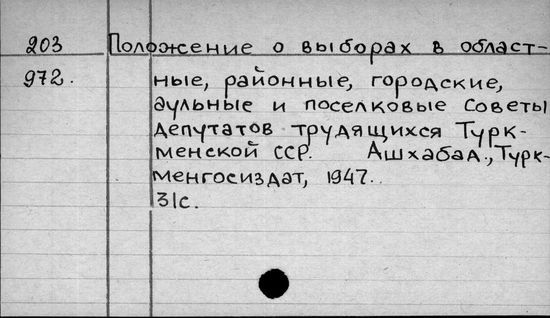 203 Положение о выборах в област-
972. ные, районные, городские,
аульные и поселковые Советы
депутатов трудящихся Турк-
менской ССР. Ашхабад., Турк-
менгосиздат, 1947..
31с.